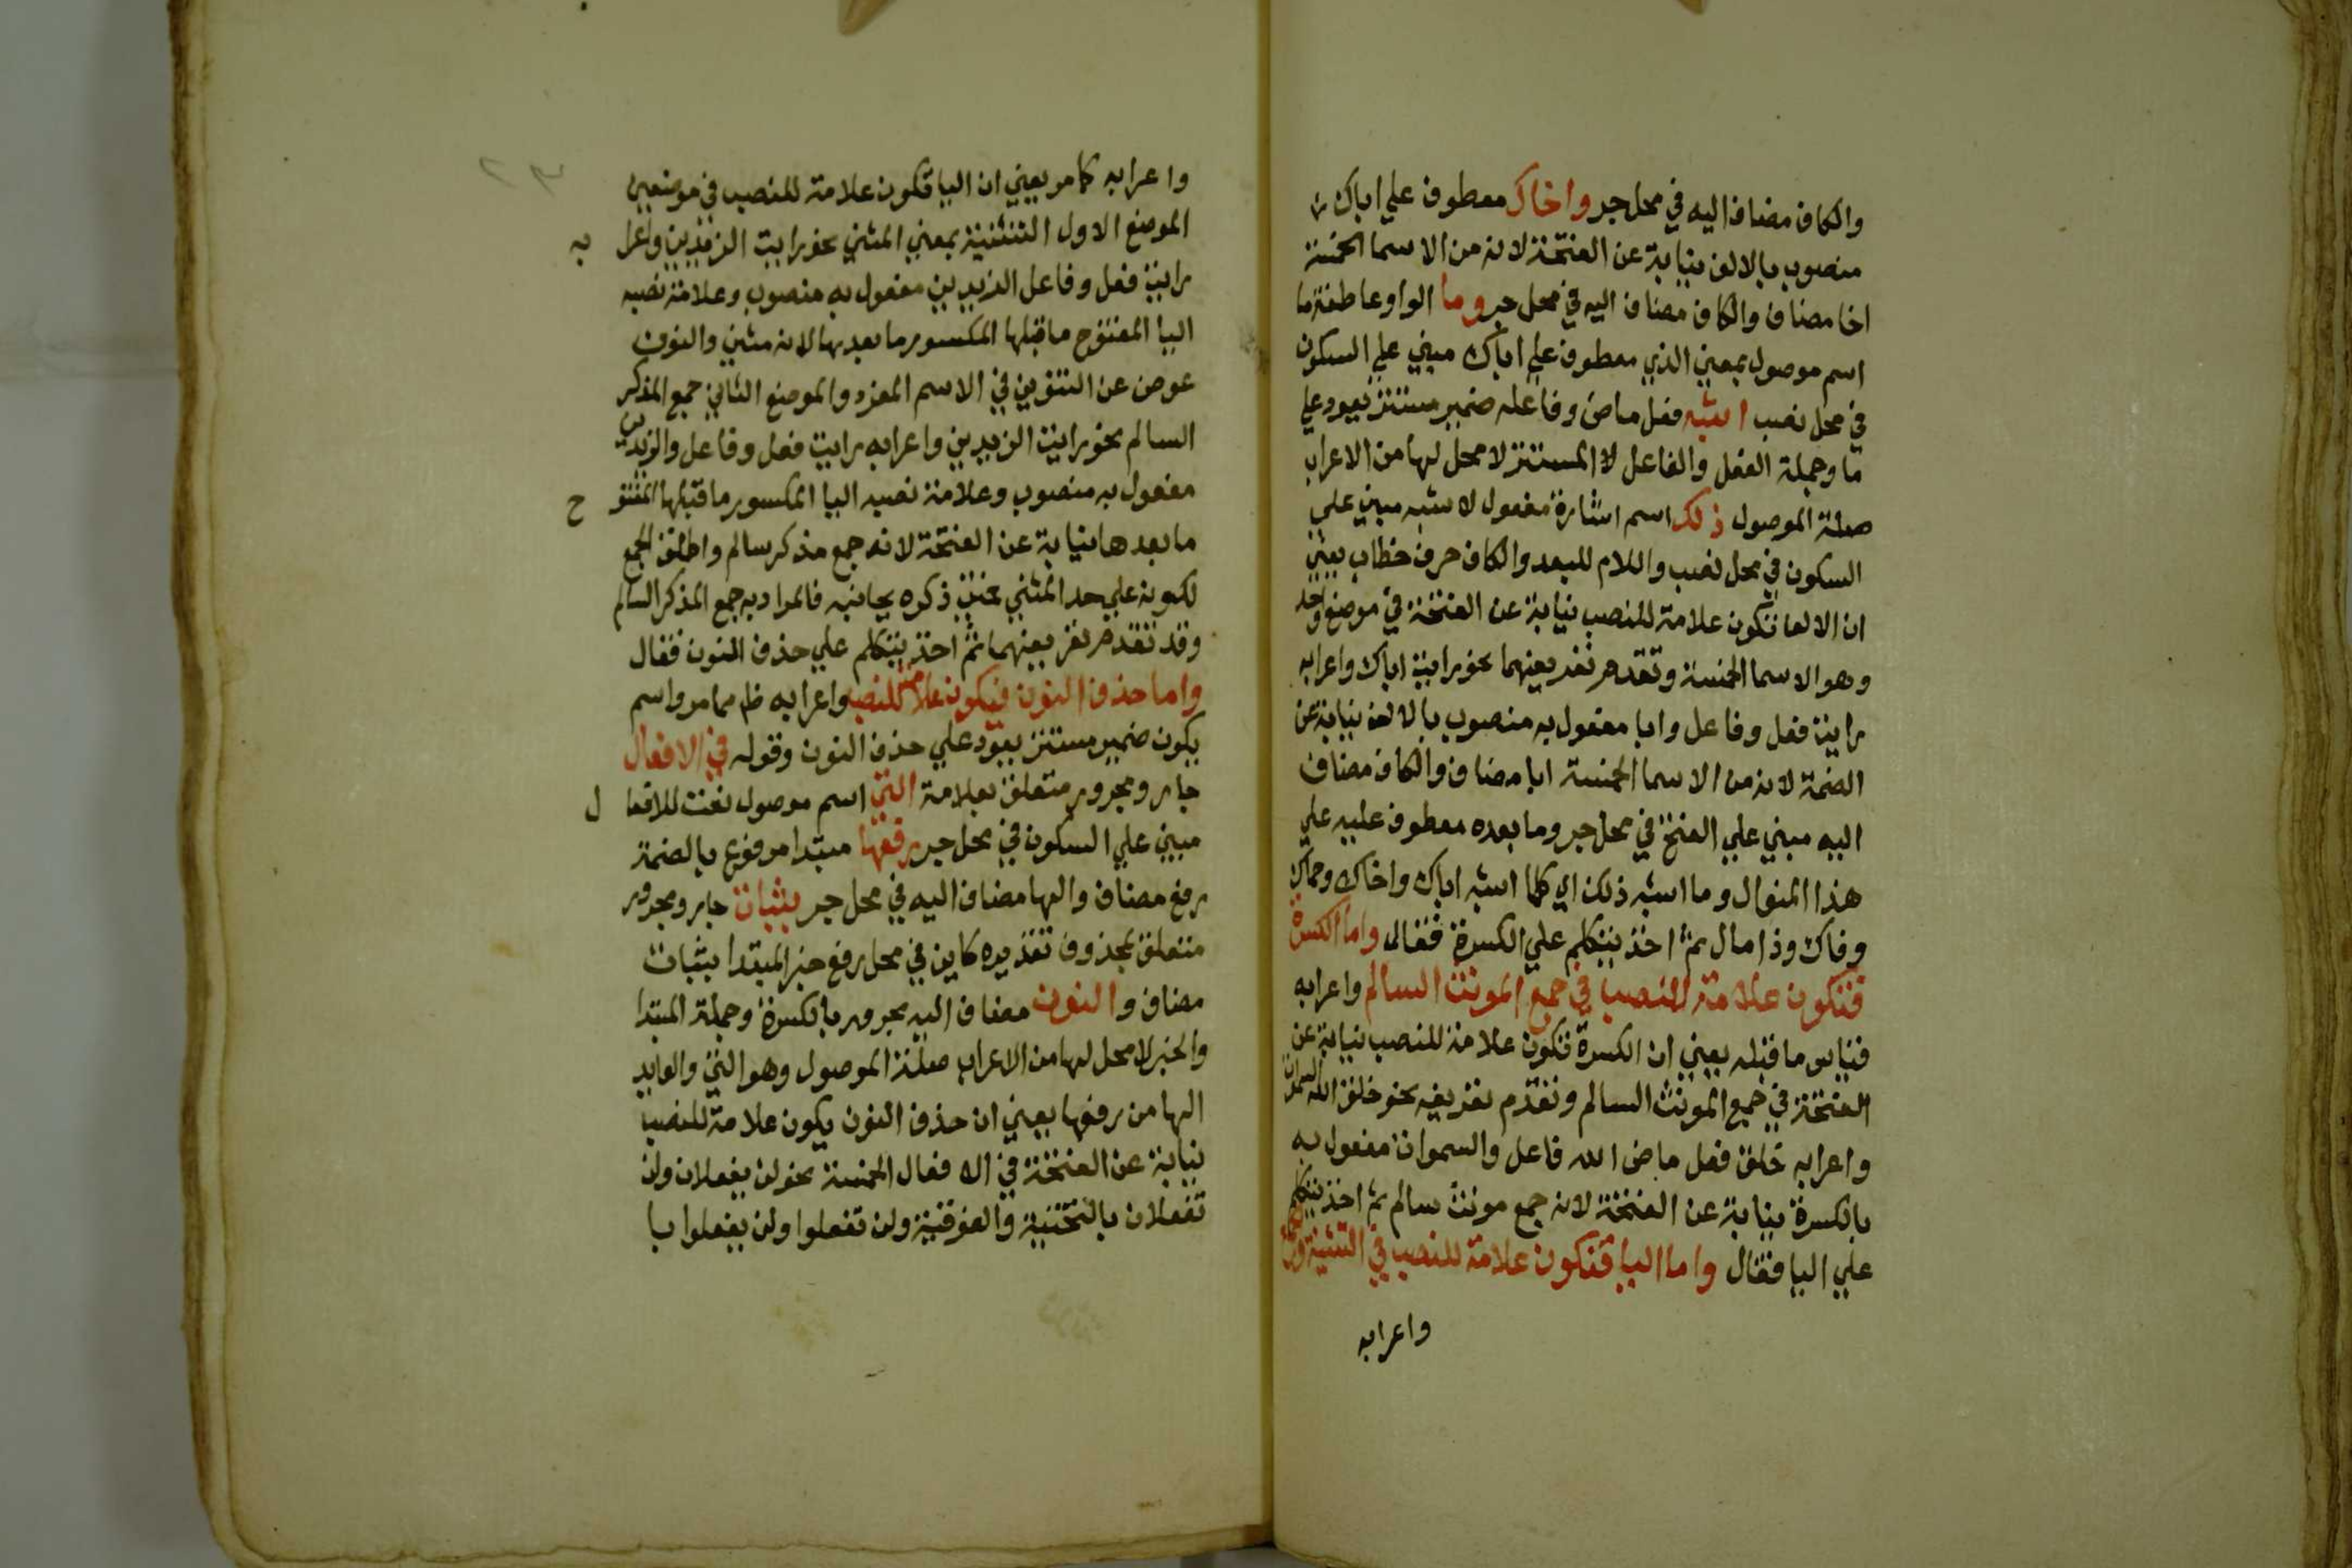 والكاف مضاف اليه في محل جر واخاك معطوف علي اباك
منصوب بالالف نيابة عن الفتحة لانه من الاسما الخمسة
اخا مضاف والكاف مضاف اليه في محل جر وما الواو عاطفة ما
اسم موصول بمعني الذي معطوف علي اباك مبني علي السكون
في محل نصب اشبه فعل ماض وفاعله ضمير مستتر يعود علي
ما وجملة الفعل والفاعل لا المستتر لا محل لها من الاعراب
صلة الموصول ذلك اسم اشارة مفعول لاشبه مبني علي
السكون في محل نصب واللام للبعد والكاف حرف خطاب يعني
ان الالف تكون علامة للنصب نيابة عن الفتحة في موضع واحد
وهو الاسما الخمسة وتقدم تعريفهما نحو رايت اباك واعرابه
رايت فعل وفاعل وابا مفعول به منصوب بالالف نيابة عن
الضمة لانه من الاسما الخمسة ابا مضاف والكاف مضاف
اليه مبني علي الفتح في محل جر وما بعده معطوف عليه علي
هذا المنوال وما اشبه ذلك اي كلما اشبه اباك واخاك وحماك
وفاك وذا مال ثم اخذ يتكلم علي الكسرة فقال واما الكسرة
فتكون علامة للنصب في جمع المونث السالم واعرابه
قياس ما قبله يعني ان الكسرة تكون علامة للنصب نيابة عن
الفتحة في جمع المونث السالم وتقدم تعريفه نحو خلق الله السموات
واعرابه خلق فعل ماض الله فاعل والسموات مفعول به
بالكسرة نيابة عن الفتحة لانه جمع مونث سالم ثم اخذ يتكلم
علي اليا فقال واما اليا فتكون علامة للنصب في التثنية والجمع
واعرابه
واعرابه كما مر يعني ان اليا تكون علامة للنصب في موضعين
الموضع الاول التثنية بمعني المثني نحو رايت الزيدين واعرا به
رايت فعل وفاعل الزيدين مفعول به منصوب وعلامة نصبه
اليا المفتوح ما قبلها المكسور ما بعدها لانه مثني والنون
عوض عن التنوين في الاسم المفرد والموضع الثاني جمع المذكر
السالم نحو رايت الزيدين واعرابه رايت فعل وفاعل والزيدين
مفعول به منصوب وعلامة نصبه اليا المكسور ما قبلها المفتو ح
ما بعدها نيابة عن الفتحة لانه جمع مذكر سالم واطلق الجمع
لكونه علي حد المثني ذكره بجانبه فالمراد به جمع المذكر السالم
وقد تقدم تعريفهما ثم اخذ يتكلم علي حذف النون فقال
واما حذف النون فيكون علامة للنصب واعرابه ظ مما مر واسم
يكون ضمير مستتر يعود علي حذف النون وقوله في الافعال
جار ومجرور متعلق بعلامة التي اسم موصول نعت للافعا ل
مبني علي السكون في محل جر رفعها مبتدا مرفوع بالضمة
رفع مضاف والها مضاف اليه في محل جر بثبات جار ومجرور
متعلق بمحذوف تقديره كاين في محل رفع خبر المبتدا بثبات
مضاف والنون مضاف اليه مجرور بالكسرة وجملة المبتدا
والخبر لا محل لها من الاعراب صلة الموصول وهو التي والعايد
الها من رفعها يعني ان حذف النون يكون علامة للنصب
نيابة عن الفتحة في الافعال الخمسة نحو لن يفعلان ولن
تفعلان بالتحتية والفوقية ولن تفعلوا ولن يفعلوا با